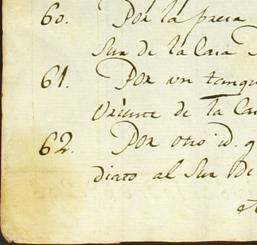 60. Por la presa
Sur de la Casa
61. Por un tanqu
Oriente de la Ca
62. Por otro id. q
diato al Sur de